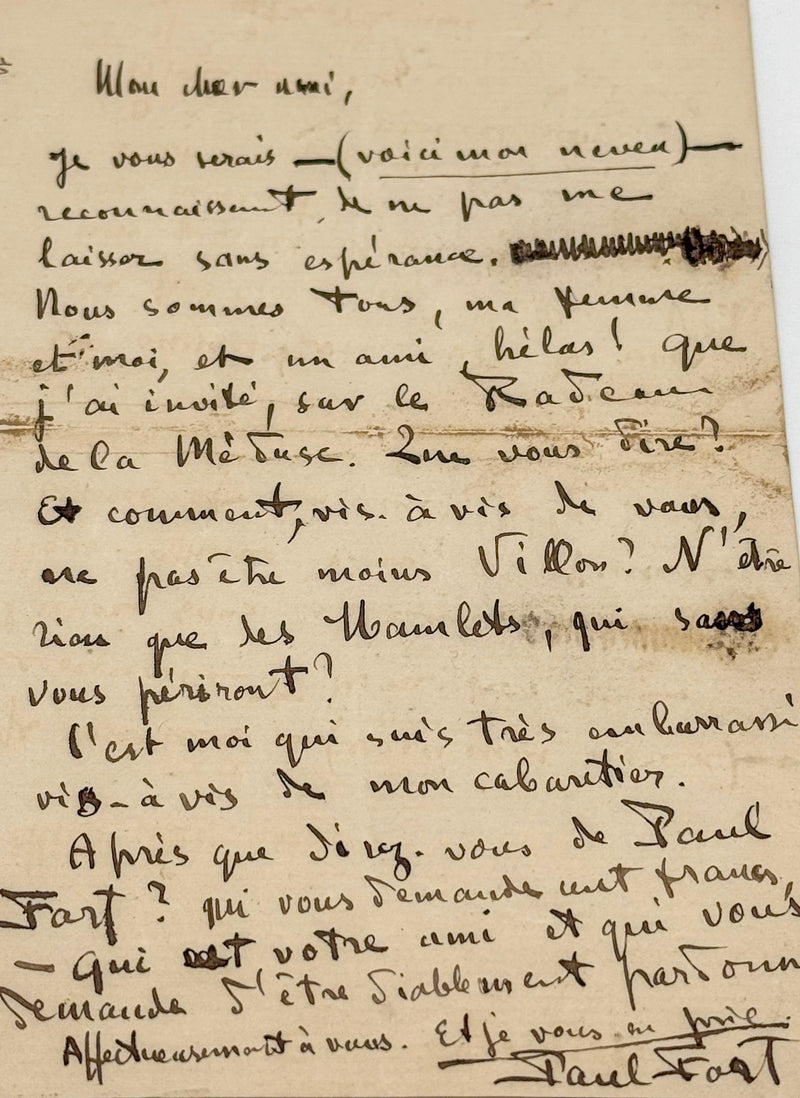 Mon cher ami,
Je vous serais —(voici mon neveu)—
reconnaissant, de ne pas me
laisser sans espérance.
Nous sommes tous, ma femme
et moi, et un ami, hélas! que
j'ai invité, sur le Radeau
de la Méduse. Que vous dire?
Et comment, vis-à vis de vous,
ne pas être moins Villon? N'être
rien que des Hamlets, qui sans
vous périront?
C'est moi qui suis très embarrassé
vis-à vis de mon cabaretier.
Après que direz-vous de Paul
Fort? qui vous demande cent francs,
— Qui est votre ami et qui vous
demande d'être diablement pardonn
Affectueusement à vous. Et je vous en prie.
Paul Fort